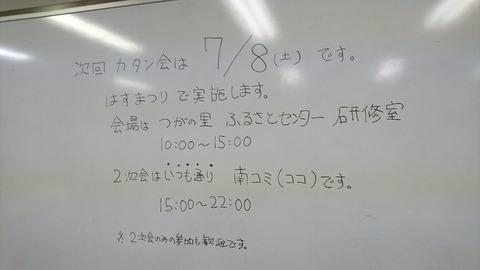 次回 カタン会は 7/8(土) です。
はすまつり で実施します。
会場は つがの里 ふるさとセンター 研修室
10:00～15:00
2次会はいつも通り 南コミ(ココ)です。
15:00～22:00
※2次会のみの参加も歓迎です。